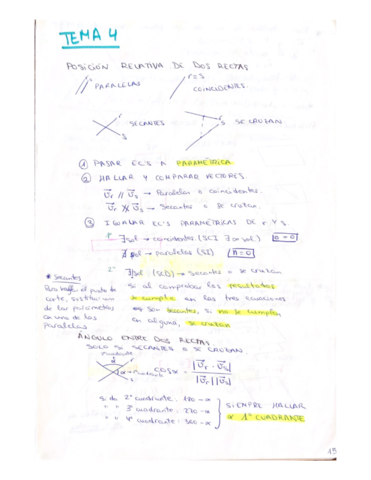 TEMA 4
POSICIÓN RELATIVA DE DOS RECTAS
PARALELAS
r=s
COINCIDENTES
SECANTES
SE CRUZAN
s
① PASAR EC'S A PARAMÉTRICA.
② HALLAR Y COMPARAR VECTORES
Vr // Vs → Paralelas o coincidentes.
→ Secantes o se cruzan.
③ IGUALAR EC'S PARAMÉTRICAS DE r Y s
1º ∃sol → coincidentes (SCI ∃∞sol)
∄ sol → paralelas (SI)
2º ∃sol (SCD) → Secantes o se cruzan
Si al comprobar los resultados
se cumple en las tres ecuaciones
son secantes, si no se cumplen
en alguna, se cruzan
* Secantes
Para hallar el punto de
corte, sustituir uno
de los parámetros
en una de las
paralelas
ÁNGULO ENTRE DOS RECTAS
SOLO SI SECANTES O SE CRUZAN
cos α = |Vr · Vs| / |Vr||Vs|
s. da 2º cuadrante: 180-α
" " 3º cuadrante: 270-α
" " 4º cuadrante: 360-α
SIEMPRE HALLAR
α 1º CUADRANTE
15